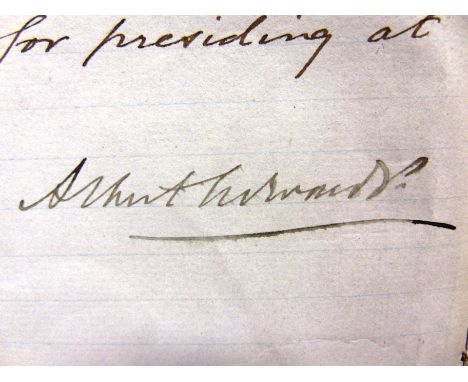 for presiding at
Albert Edward P.